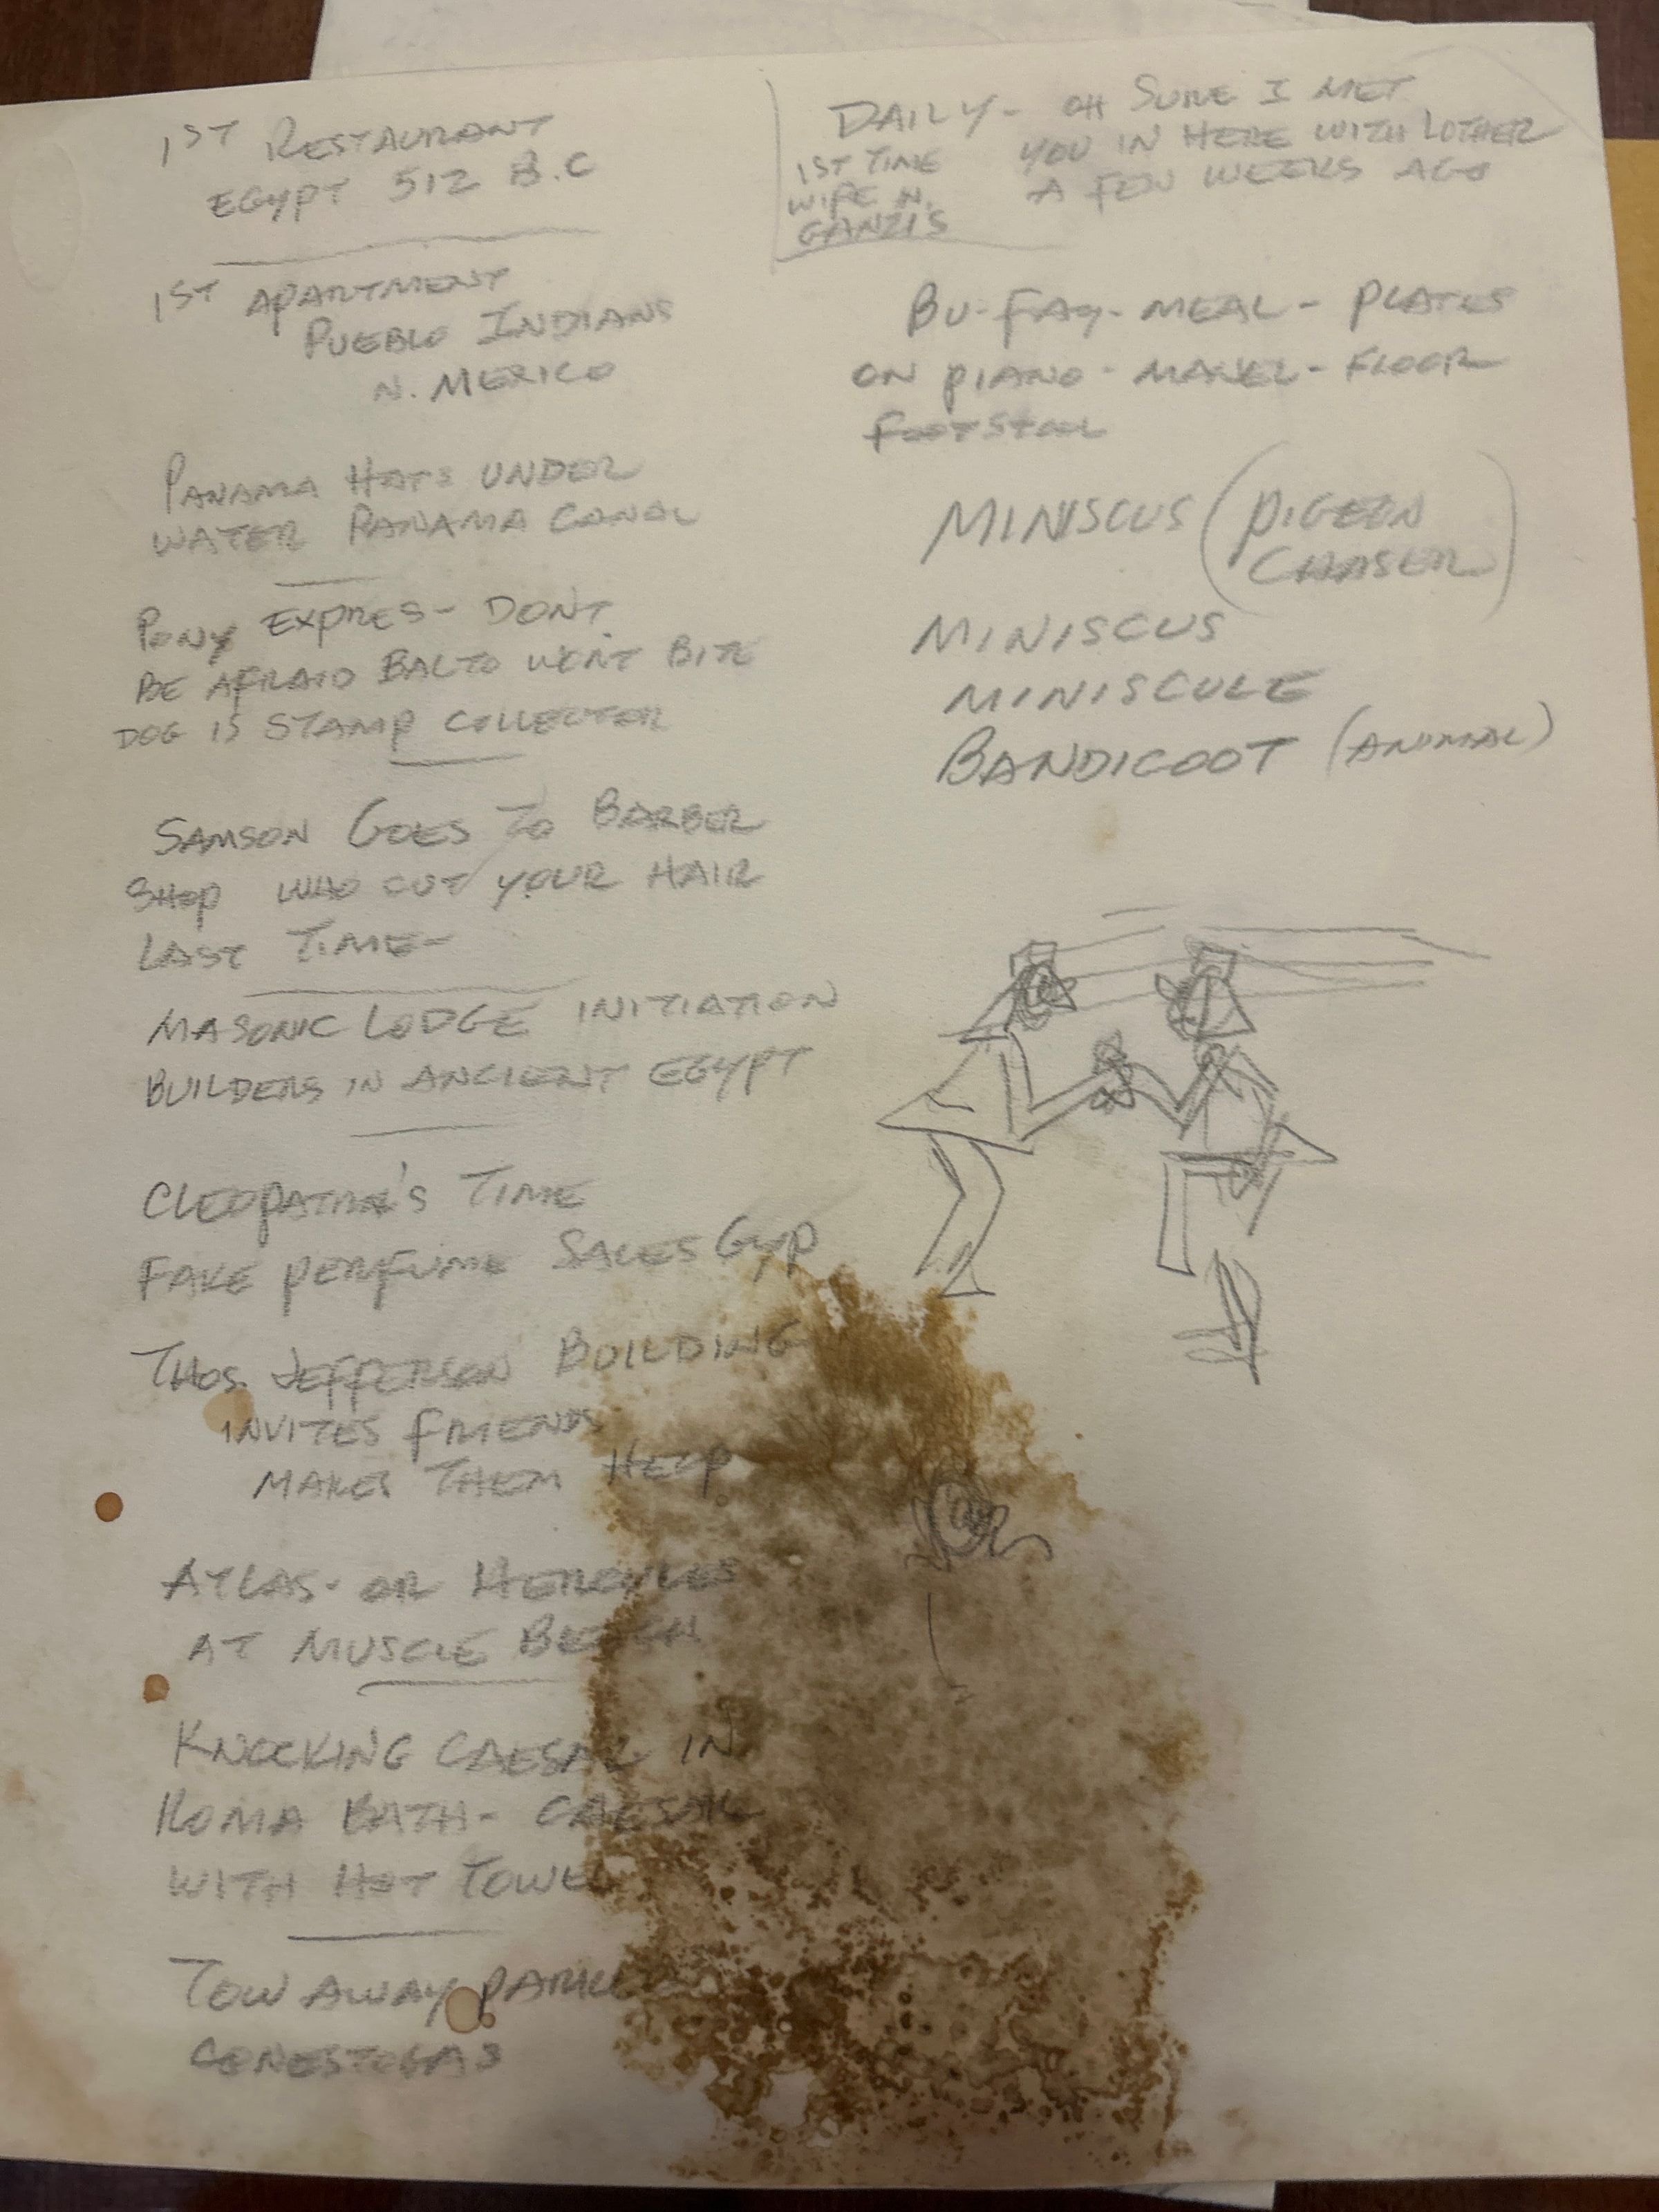 1ST RESTAURANT
EGYPT 512 B.C
1ST APARTMENT
PUEBLO INDIANS
N. MEXICO
PANAMA HATS UNDER
WATER PANAMA CANAL
PONY EXPRES - DONT
BE AFRAID BALTO WON'T BITE
DOG IS STAMP COLLECTOR
SAMSON GOES TO BARBER
SHOP WHO CUT YOUR HAIR
LAST TIME -
MASONIC LODGE INITIATION
BUILDERS IN ANCIENT EGYPT
CLEOPATRA'S TIME
FAKE PERFUME SALES GYP
THOS. JEFFERSON BUILDING
INVITES FRIENDS
MAKES THEM HELP
ATLAS - OR HERCULES
AT MUSCLE BEACH
KNOCKING CAESAR IN
ROMA BATH - CAESAR
WITH HOT TOWEL
TOW AWAY
CONESTOGAS
DAILY - OH SURE I MET
YOU IN HERE WITH LOTHER
A FEW WEEKS AGO
1ST TIME
WIFE N.
GANZI'S
BU-FAY - MEAL - PLATES
ON PIANO - MANEL - FLOOR
FOOTSTOOL
MINISCUS (PIGEON
CHASER)
MINISCUS
MINISCULE
BANDICOOT (ANIMAL)